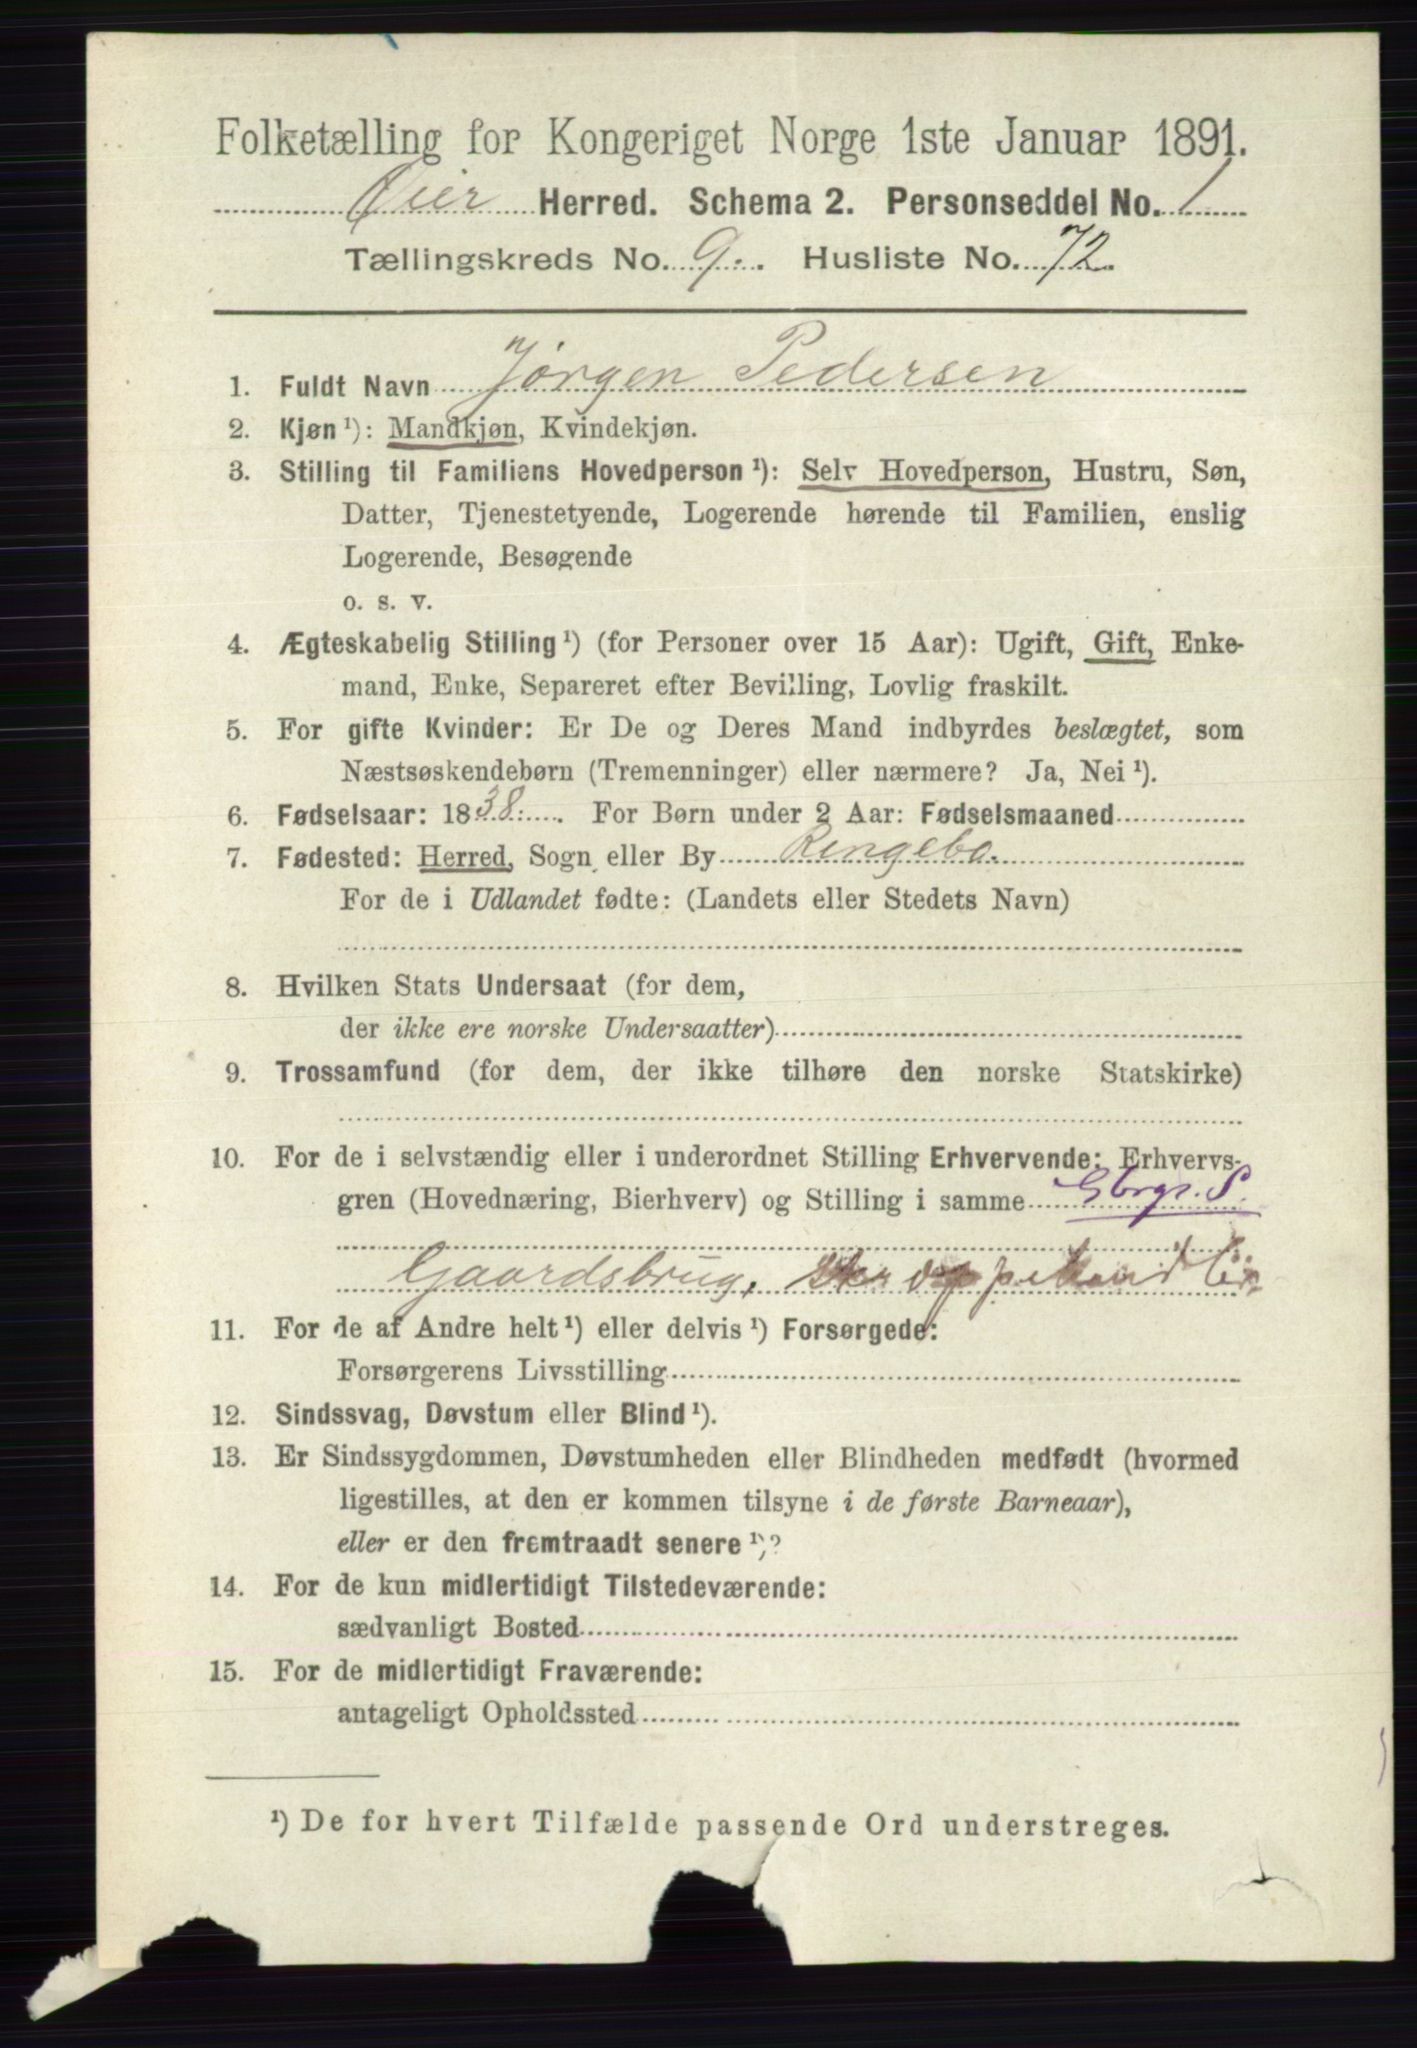 Folketælling for Kongeriget Norge 1ste Januar 1891.
Øier Herred. Schema 2. Personseddel No. 1
Tællingskreds No. 9. Husliste No. 72.
1. Fuldt Navn Jørgen Pedersen
2. Kjøn¹): Mandkjøn, Kvindekjøn.
3. Stilling til Familiens Hovedperson¹): Selv Hovedperson, Hustru, Søn,
Datter, Tjenestetyende, Logerende hørende til Familien, enslig
Logerende, Besøgende
o. s. v.
4. Ægteskabelig Stilling¹) (for Personer over 15 Aar): Ugift, Gift, Enke-
mand, Enke, Separeret efter Bevilling, Lovlig fraskilt.
5. For gifte Kvinder: Er De og Deres Mand indbyrdes beslægtet, som
Næstsøskendebørn (Tremenninger) eller nærmere? Ja, Nei¹).
6. Fødselsaar: 1838. For Børn under 2 Aar: Fødselsmaaned
7. Fødested: Herred, Sogn eller By Ringebo.
For de i Udlandet fødte: (Landets eller Stedets Navn)
8. Hvilken Stats Undersaat (for dem,
der ikke ere norske Undersaatter)
9. Trossamfund (for dem, der ikke tilhøre den norske Statskirke)
10. For de i selvstændig eller i underordnet Stilling Erhvervende: Erhvervs-
gren (Hovednæring, Bierhverv) og Stilling i samme Gbrgr. S.
Gaardsbrug,
11. For de af Andre helt¹) eller delvis¹) Forsørgede:
Forsørgerens Livsstilling
12. Sindssvag, Døvstum eller Blind¹).
13. Er Sindssygdommen, Døvstumheden eller Blindheden medfødt (hvormed
ligestilles, at den er kommen tilsyne i de første Barneaar),
eller er den fremtraadt senere¹)?
14. For de kun midlertidigt Tilstedeværende:
sædvanligt Bosted
15. For de midlertidigt Fraværende:
antageligt Opholdssted
¹) De for hvert Tilfælde passende Ord understreges.